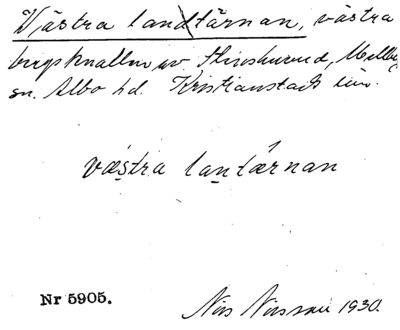 Västra landtärnan, västra
bergsknallen av Stenshuvud, Mellby
sn. Albo hd. Kristianstads län.
västra lantærnan
Nr 5905.
Nils Nilsson 1930.